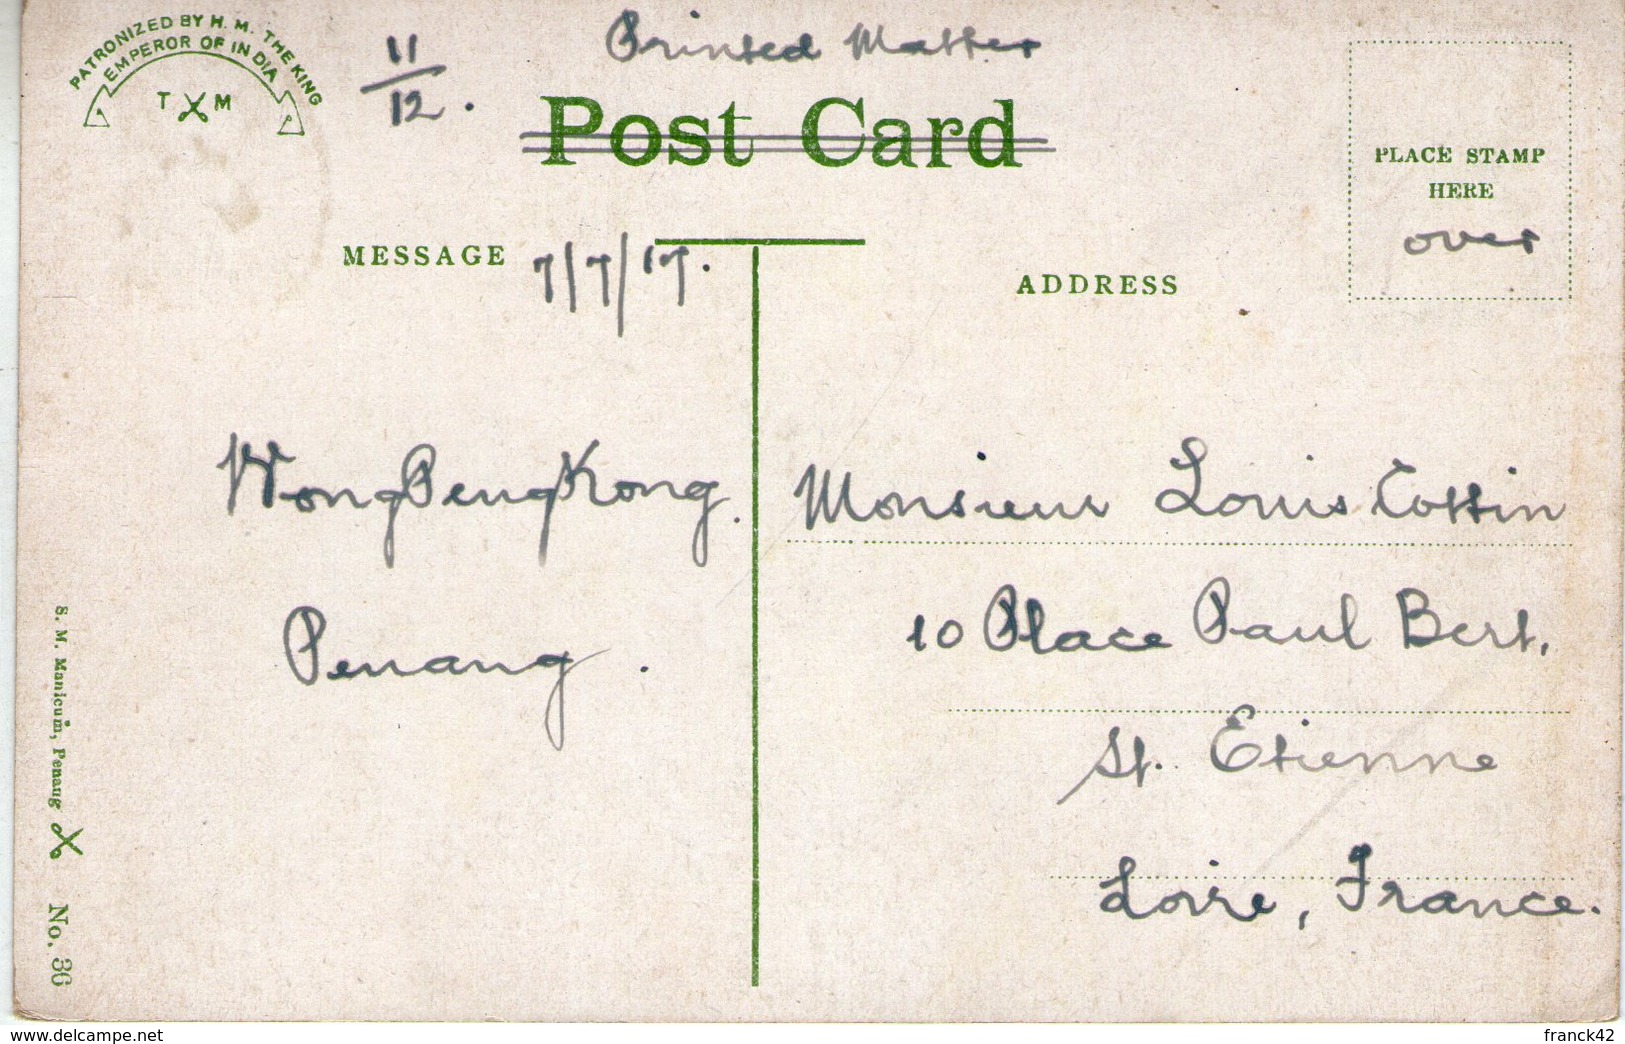 PATRONIZED BY H. M. THE KING
EMPEROR OF INDIA
T M
11/12.
Printed Matter
Post Card
PLACE STAMP
HERE
over
MESSAGE
7/7/'17.
ADDRESS
Wong Peng Kong.
Penang.
Monsieur Louis Cottin
10 Place Paul Bert,
St. Etienne
Loire, France.
S. M. Manicum, Penang
No. 36
www.delcampe.net
franck42